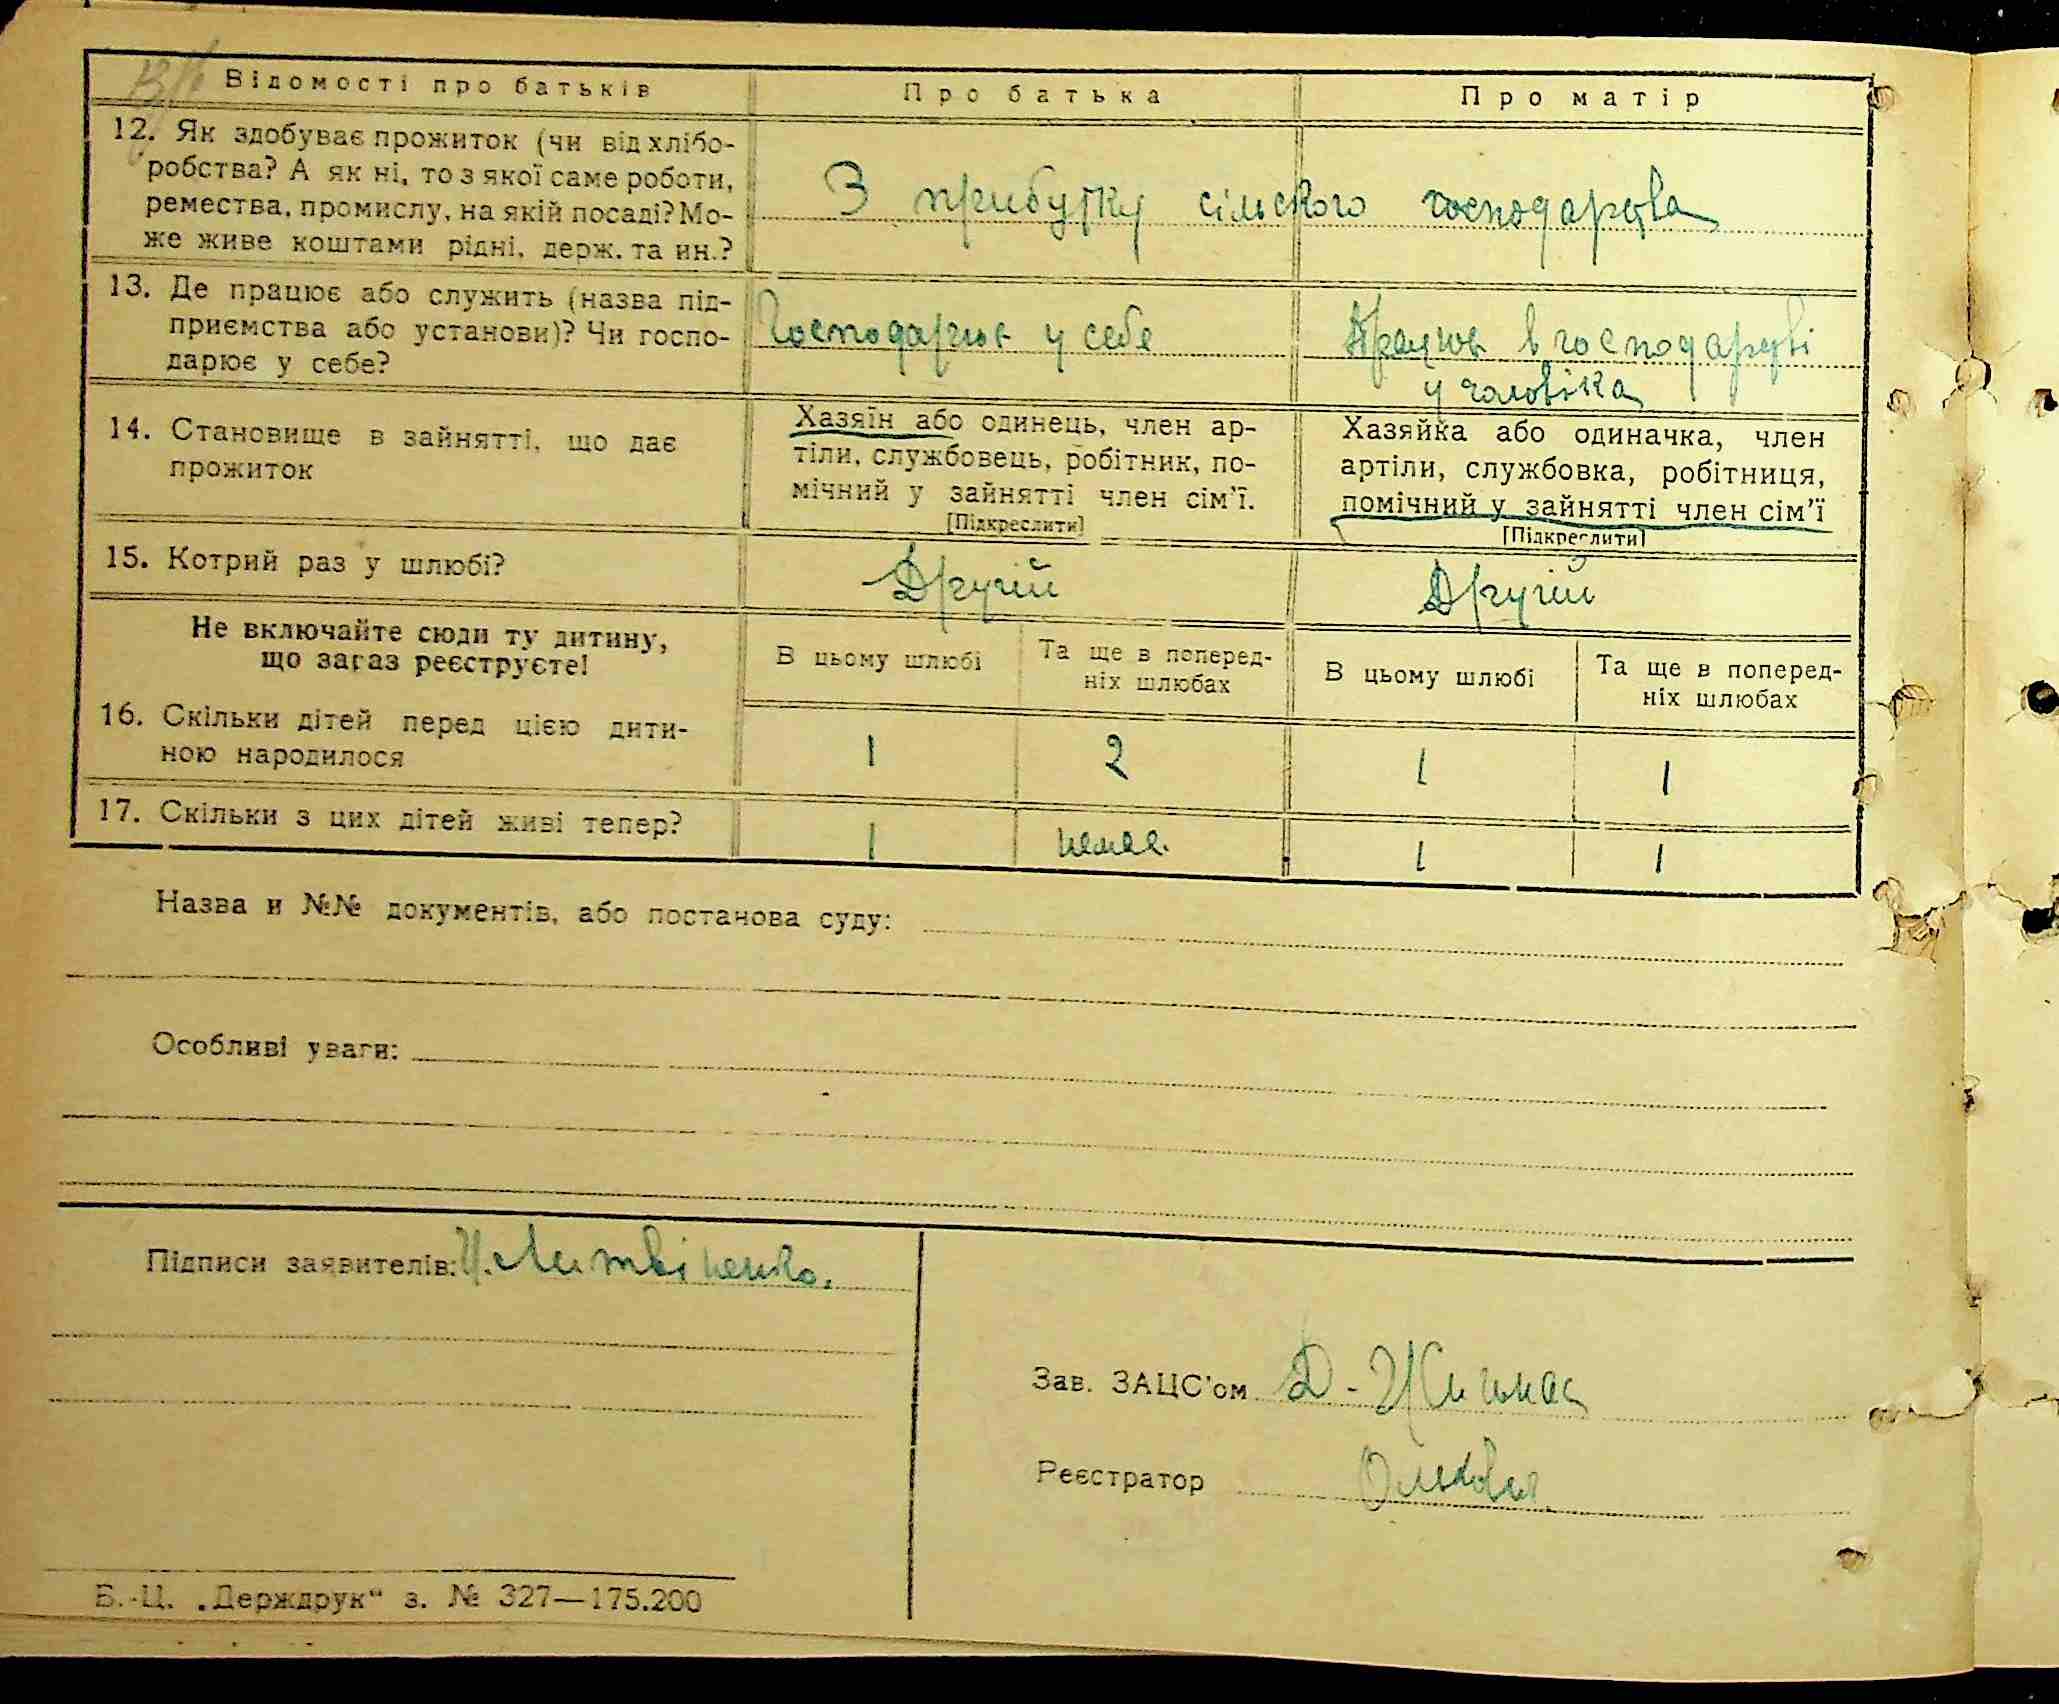 Відомості про батьків
Про батька
Про матір
12. Як здобуває прожиток (чи від хлібо-
робства? А як ні, то з якої саме роботи,
ремества, промислу, на якій посаді? Мо-
же живе коштами рідні, держ. та ин.?
З прибутку сільского господарства
13. Де працює або служить (назва під-
приємства або установи)? Чи госпо-
дарює у себе?
Господарює у себе
Працює в господарстві
у чоловіка
14. Становище в зайнятті, що дає
прожиток
Хазяїн або одинець, член ар-
тіли, службовець, робітник, по-
мічний у зайнятті член сім'ї.
[Підкреслити]
Хазяйка або одиначка, член
артіли, службовка, робітниця,
помічний у зайнятті член сім'ї
[Підкреслити]
15. Котрий раз у шлюбі?
Другій
Другій
Не включайте сюди ту дитину,
що зараз реєструєте!
В цьому шлюбі
Та ще в поперед-
ніх шлюбах
В цьому шлюбі
Та ще в поперед-
ніх шлюбах
16. Скільки дітей перед цією дити-
ною народилося
1
2
1
1
17. Скільки з цих дітей живі тепер?
1
немає.
1
1
Назва и №№ документів, або постанова суду:
Особливі уваги:
Підписи заявителів: Литвіненко.
Зав. ЗАЦС'ом Д.
Реєстратор
Б.-Ц. „Держдрук" з. № 327—175.200